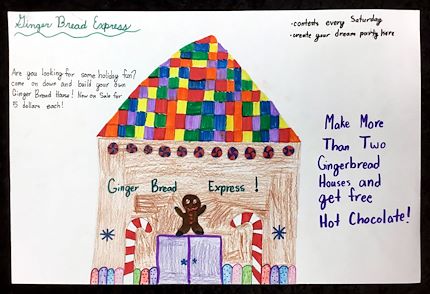 Ginger Bread Express
• contests every Saturday
• create your dream party here
Are you looking for some holiday fun?
come on down and build your own
Ginger Bread House! Now on Sale for
15 dollars each!
Make More
Than Two
Gingerbread
Houses and
get free
Hot Chocolate!
Ginger Bread Express!